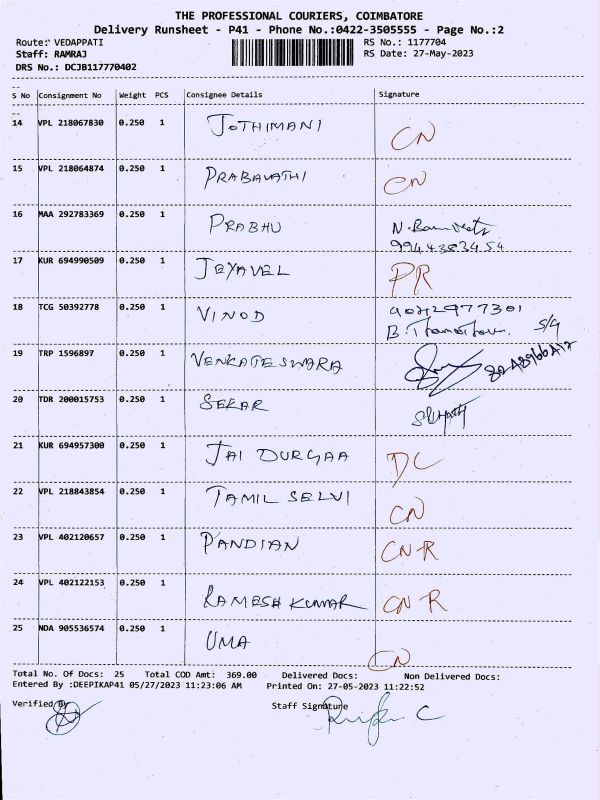 THE PROFESSIONAL COURIERS, COIMBATORE
Delivery Runsheet - P41 - Phone No.:0422-3505555 - Page No.:2
Route: VEDAPPATI RS No.: 1177704
Staff: RAMRAJ RS Date: 27-May-2023
DRS No.: DCJB117770402
S No Consignment No Weight PCS Consignee Details Signature
14 VPL 218067830 0.250 1 JOTHIMANI CN
15 VPL 218064874 0.250 1 PRABAVATHI CN
16 MAA 292783369 0.250 1 PRABHU N.
9944383454
17 KUR 694990509 0.250 1 JEYAVEL PR
18 TCG 50392778 0.250 1 VINOD
B.
S/G
19 TRP 1596897 0.250 1 VENKATESWARA
20 TDR 200015753 0.250 1 SEKAR
21 KUR 694957300 0.250 1 JAI DURGAA DC
22 VPL 218843854 0.250 1 TAMIL SELVI CN
23 VPL 402120657 0.250 1 PANDIAN CN-R
24 VPL 402122153 0.250 1 RAMESH KUMAR CN-R
25 NDA 905536574 0.250 1 UMA CN
Total No. Of Docs: 25 Total COD Amt: 369.00 Delivered Docs: Non Delivered Docs:
Entered By :DEEPIKAP41 05/27/2023 11:23:06 AM Printed On: 27-05-2023 11:22:52
Verified By Staff Signature